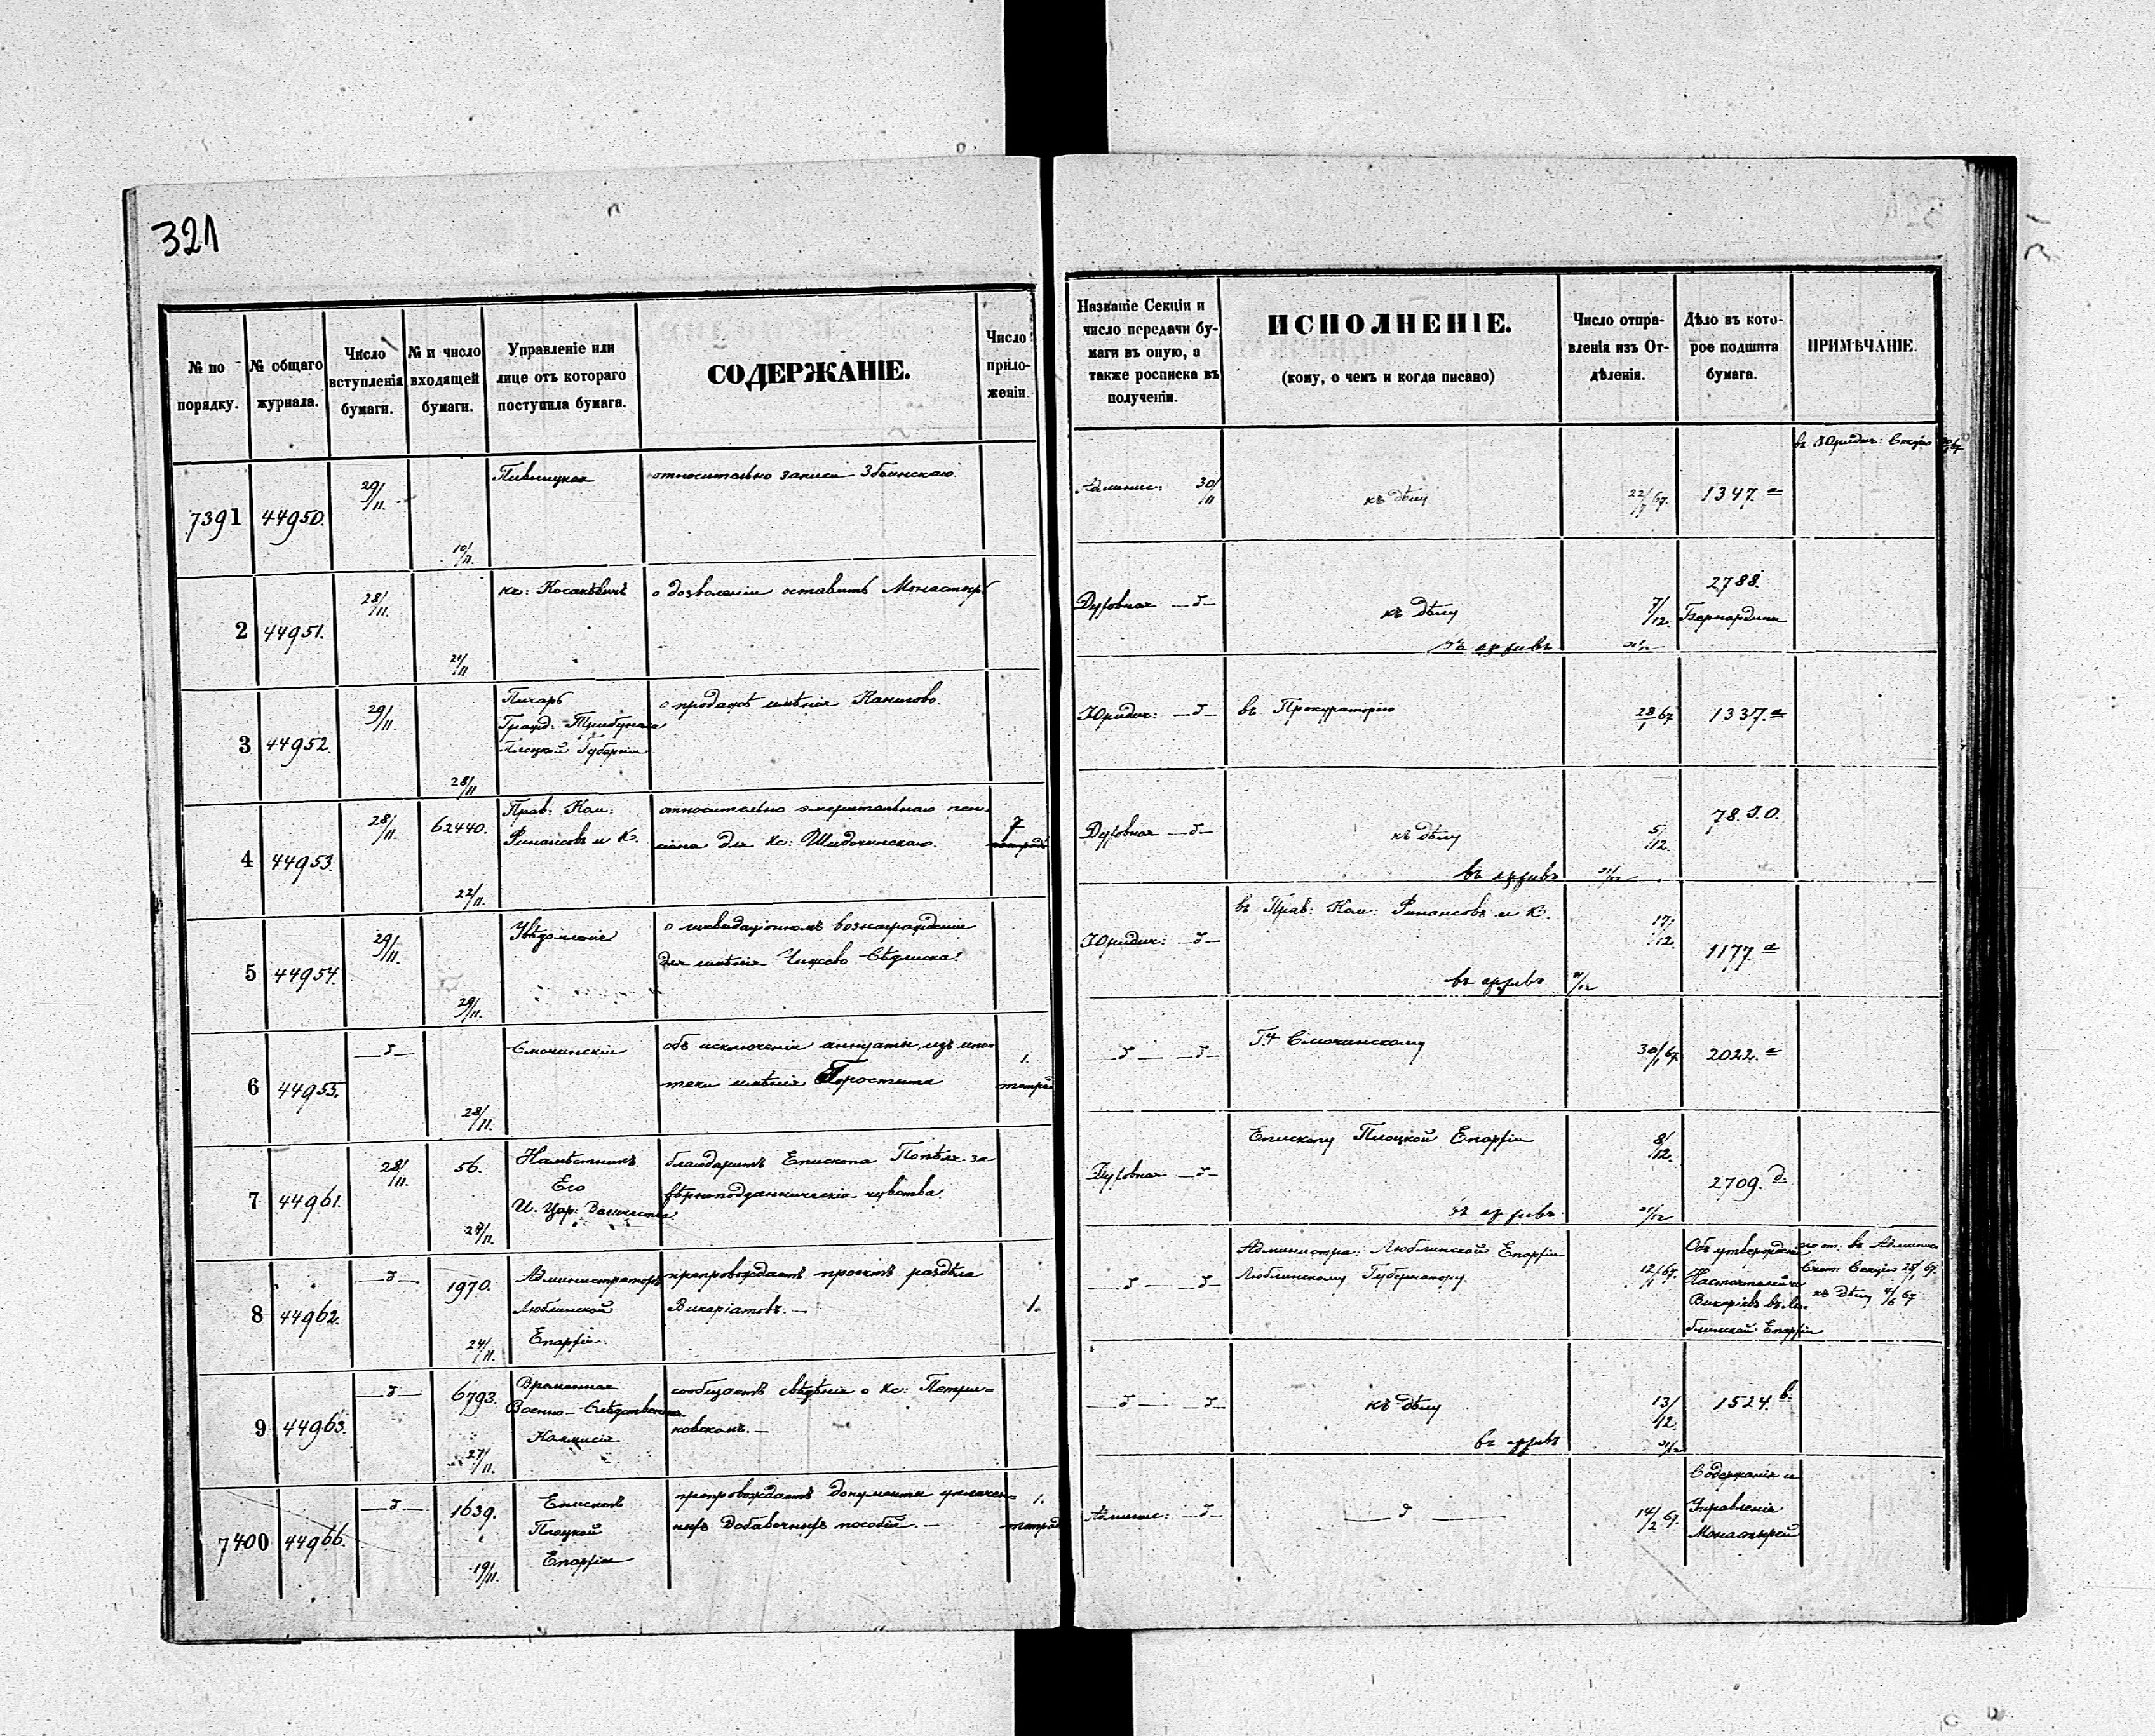 321
№ по
порядку.
№ общаго
журнала.
Число
вступленія
бумаги.
№ и число
входящей
бумаги.
Управленіе или
лице отъ котораго
поступила бумага.
СОДЕРЖАНІЕ.
Число
прило-
женій.
Названіе Секціи и
число передачи бу-
маги въ оную, а
также росписка въ
полученіи.
ИСПОЛНЕНІЕ.
(кому, о чемъ и когда писано)
Число отпра-
вленія изъ От-
дѣленія.
Дѣло въ кото-
рое подшита
бумага.
ПРИМѢЧАНІЕ.
7391 44950. 29/11. 10/11. Пивницкая относительно записи Збоинскаго.
Админис: 30/11 къ дѣлу 1347. а
въ Юридич: Секцію
2 44951. 28/11. 21/11 кс: о дозволеніи оставить Монастырь
Духовная —д— къ дѣлу 7/12. 2788.
Бернардины
въ архивъ 31/12
3 44952. 29/11. 28/11 Писарь
Гражд: Трибунала
Плоцкой Губерніи
о продажѣ имѣнія
Юридич: —д— въ Прокураторію 28/1 67 1337. а
4 44953. 28/11. 62440. 22/11. Прав: Ком:
Финансовъ и К.
относительно эмеритальнаго пен-
сіона для Кс:
7
Духовная —д— къ дѣлу 5/12. 78. З.О.
въ архивъ 31/12
5 44954. 29/11. 29/11. Увѣдомленіе
о ликвидаціонномъ вознагражденіи
для имѣнія Чижево
Юридич: —д— въ Прав: Ком: Финансовъ и К. 17/12. 1177. а
въ архивъ 31/12
6 44955. —д— 28/11. Смочинскій
объ исключеніи аннуаты изъ ипо-
теки имѣнія
1.
тетрадь
—д— —д— Г-ну Смочинскому 30/1 67. 2022. а
7 44961. 28/11. 56. 28/11. Намѣстникъ
Его
И. Цар: Величества
благодаритъ Епископа Попѣля за
вѣрноподданническія чувства.
Духовная —д— Епископу Плоцкой Епархіи 8/12. 2709. д.
въ архивъ 31/12
8 44962. —д— 1970. 24/11. Администраторъ
Люблинской
Епархіи
препровождаетъ проектъ раздѣла
Викаріатовъ.—
1.
—д— —д— Администра: Люблинской Епархіи
Люблинскому Губернатору. 12/1 67.
Объ утвержденіи
Настоятелей и
Викаріевъ въ Лю-
блинской Епархіи
къ дѣлу 4/6 67
9 44963. —д— 6793. 27/11. Временная
Военно-Слѣдственная
Комисія
сообщаетъ свѣдѣнія о Кс: Петри-
ковскомъ.—
—д— —д— къ дѣлу 13/12. 1524. в
въ архивъ 31/12
7400 44966. —д— 1639. 19/11. Епископъ
Плоцкой
Епархіи
препровождаетъ документы уплачен-
ныхъ добавочныхъ пособій.—
1.
тетрадь
Админис: —д— —д— 14/2 67.
Содержанія и
Управленія
Монастырей